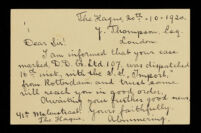 The Hague 20th-10-1920.
J. Thompson, Esq.
London.
Dear Sir!
I am informed that your case
marked D.D.G. Ltd 107, was dispatched
16th inst. with the S.S.
from Rotterdam and trust same
will reach you in good order.
Awaiting your further good news,
yours faithfully,
41t
The Hague.